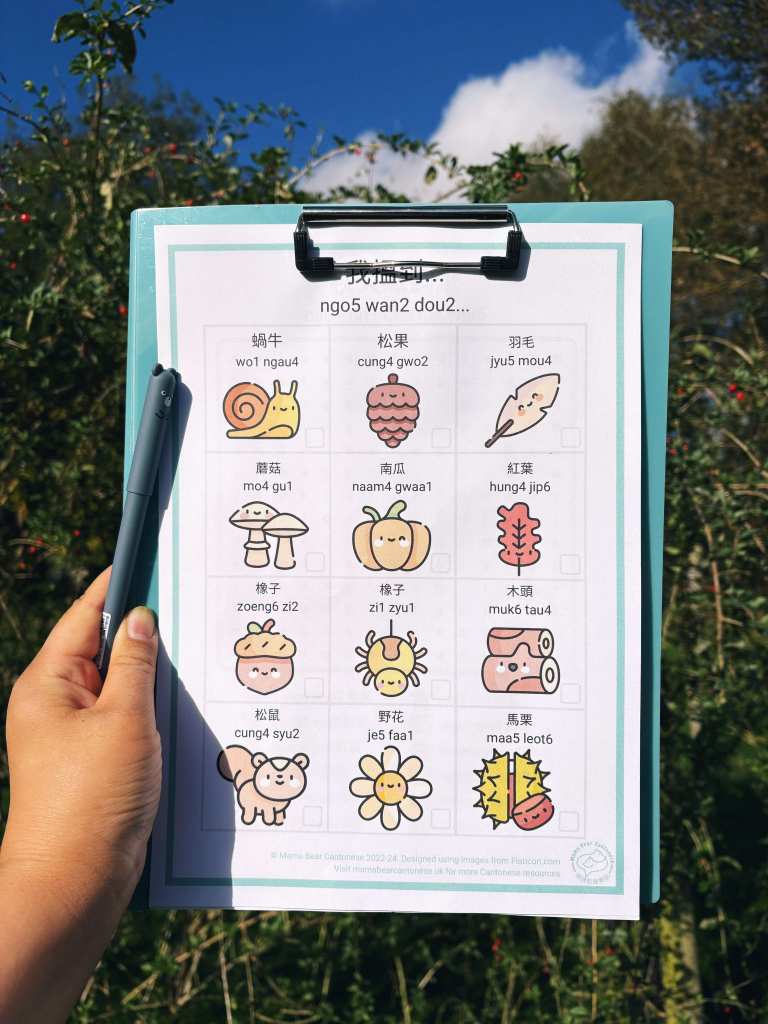 我搵到...
ngo5 wan2 dou2...
蝸牛
wo1 ngau4
松果
cung4 gwo2
羽毛
jyu5 mou4
蘑菇
mo4 gu1
南瓜
naam4 gwaa1
紅葉
hung4 jip6
橡子
zoeng6 zi2
橡子
zi1 zyu1
木頭
muk6 tau4
松鼠
cung4 syu2
野花
je5 faa1
馬栗
maa5 leot6
© Mama Bear Cantonese 2022-24. Designed using images from Flaticon.com.
Visit mamabearcantonese.uk for more Cantonese resources.
Mama Bear Cantonese